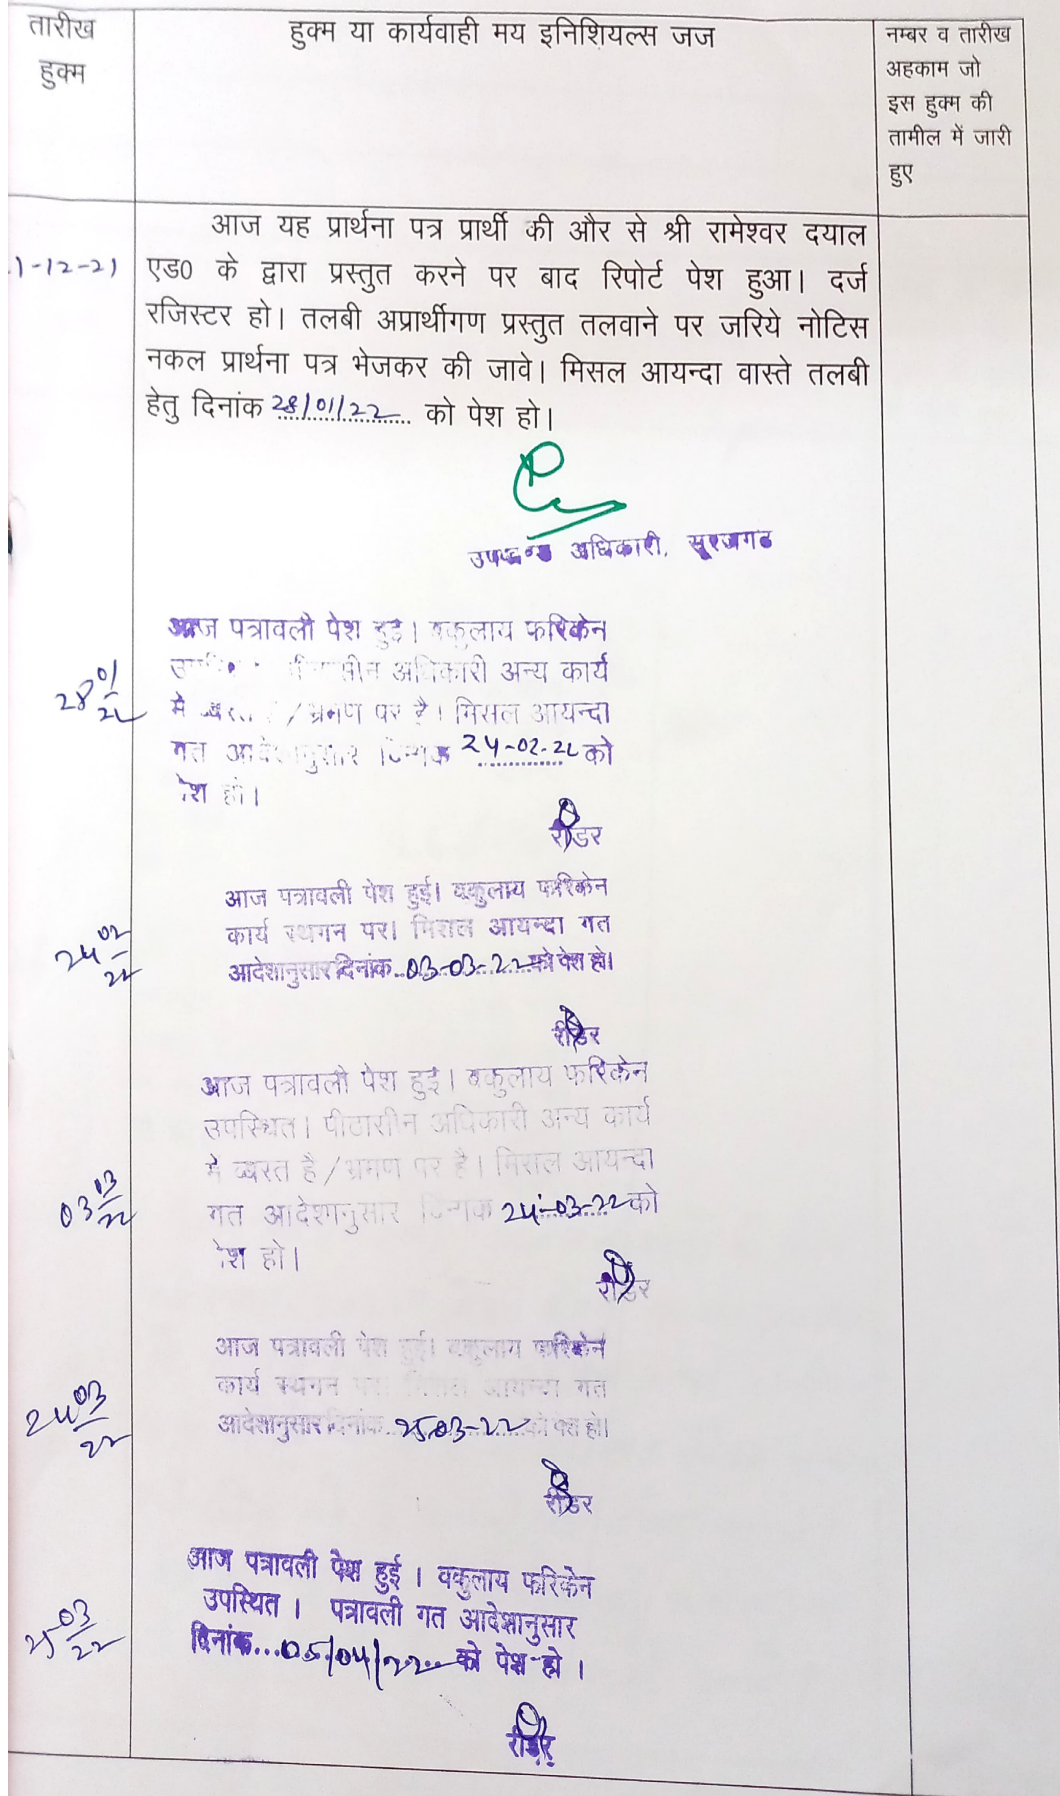 तारीख
हुक्म
हुक्म या कार्यवाही मय इनिशियल्स जज
नम्बर व तारीख
अहकाम जो
इस हुक्म की
तामील में जारी
हुए
1-12-21
आज यह प्रार्थना पत्र प्रार्थी की और से श्री रामेश्वर दयाल
एड0 के द्वारा प्रस्तुत करने पर बाद रिपोर्ट पेश हुआ। दर्ज
रजिस्टर हो। तलबी अप्रार्थीगण प्रस्तुत तलवाने पर जरिये नोटिस
नकल प्रार्थना पत्र भेजकर की जावे। मिसल आयन्दा वास्ते तलबी
हेतु दिनांक 28/01/22 को पेश हो।
उपखण्ड अधिकारी, सूरजगढ
28 01/22
आज पत्रावली पेश हुई। वकुलाय फरिकेन
अधिकारी अन्य कार्य
मे / भ्रमण पर है। मिसल आयन्दा
गत आदेशानुसार दिनांक 24-02-22 को
पेश हो।
रीडर
24 02/22
आज पत्रावली पेश हुई। वकुलाय फरिकेन
कार्य स्थगन पर। मिसल आयन्दा गत
आदेशानुसार दिनांक 03-03-22 को पेश हो।
रीडर
03 03/22
आज पत्रावली पेश हुई। वकुलाय फरिकेन
उपस्थित। पीठासीन अधिकारी अन्य कार्य
मे व्यस्त है / भ्रमण पर है। मिसल आयन्दा
गत आदेशानुसार दिनांक 24-03-22 को
पेश हो।
रीडर
24 03/22
आज पत्रावली पेश हुई। वकुलाय फरिकेन
कार्य स्थगन पर। मिसल आयन्दा गत
आदेशानुसार दिनांक 25-03-22 को पेश हो।
रीडर
25 03/22
आज पत्रावली पेश हुई। वकुलाय फरिकेन
उपस्थित। पत्रावली गत आदेशानुसार
दिनांक...05/04/22 को पेश हो।
रीडर